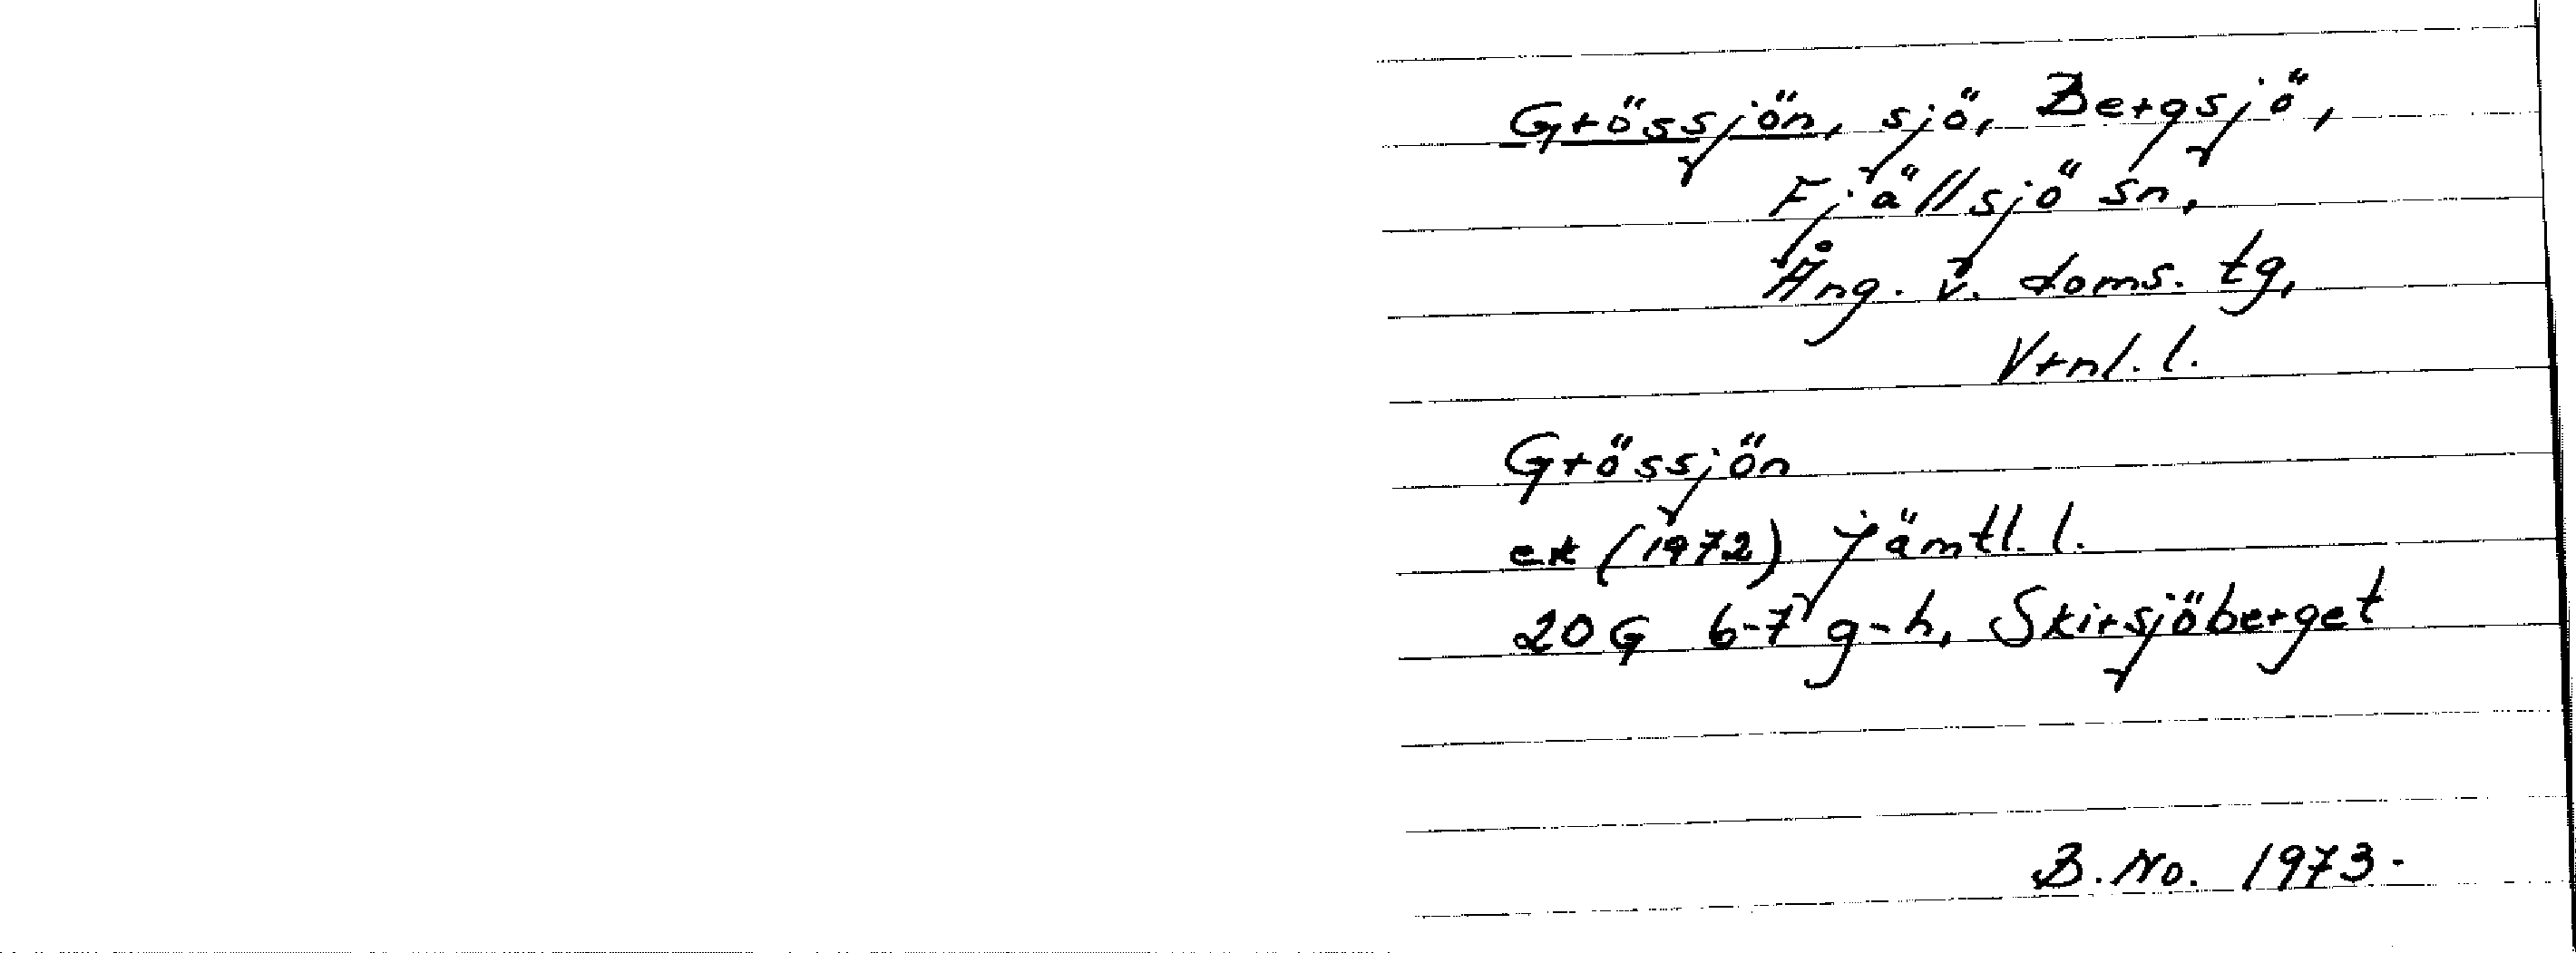 Grössjön, sjö, Bergsjö,
Fjällsjö sn,
Ång. v. doms. tg,
Vrnl. l.
Grössjön
ek (1972) Jämtl. l.
20 G 6-7 g-h, Skirsjöberget
B. No. 1973.